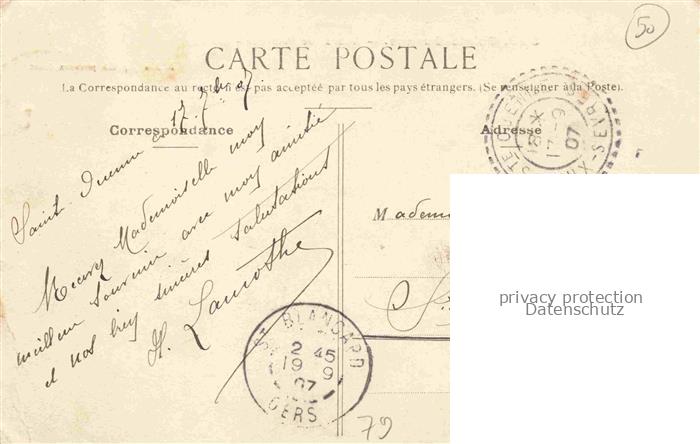 50
CARTE POSTALE
La Correspondance au recto n'est pas acceptée par tous les pays étrangers. (Se renseigner à la Poste).
Correspondance
Adresse
Saint 17 7bre 07
Recevez Mademoiselle mon
meilleur souvenir avec mon amitié
et nos bien sincères salutations
H. Lamothe
18 X
17 - 9
07
X-SÈVRES
Madem
S
privacy protection
Datenschutz
ST BLANCARD
2 45
19 9
07
GERS
79